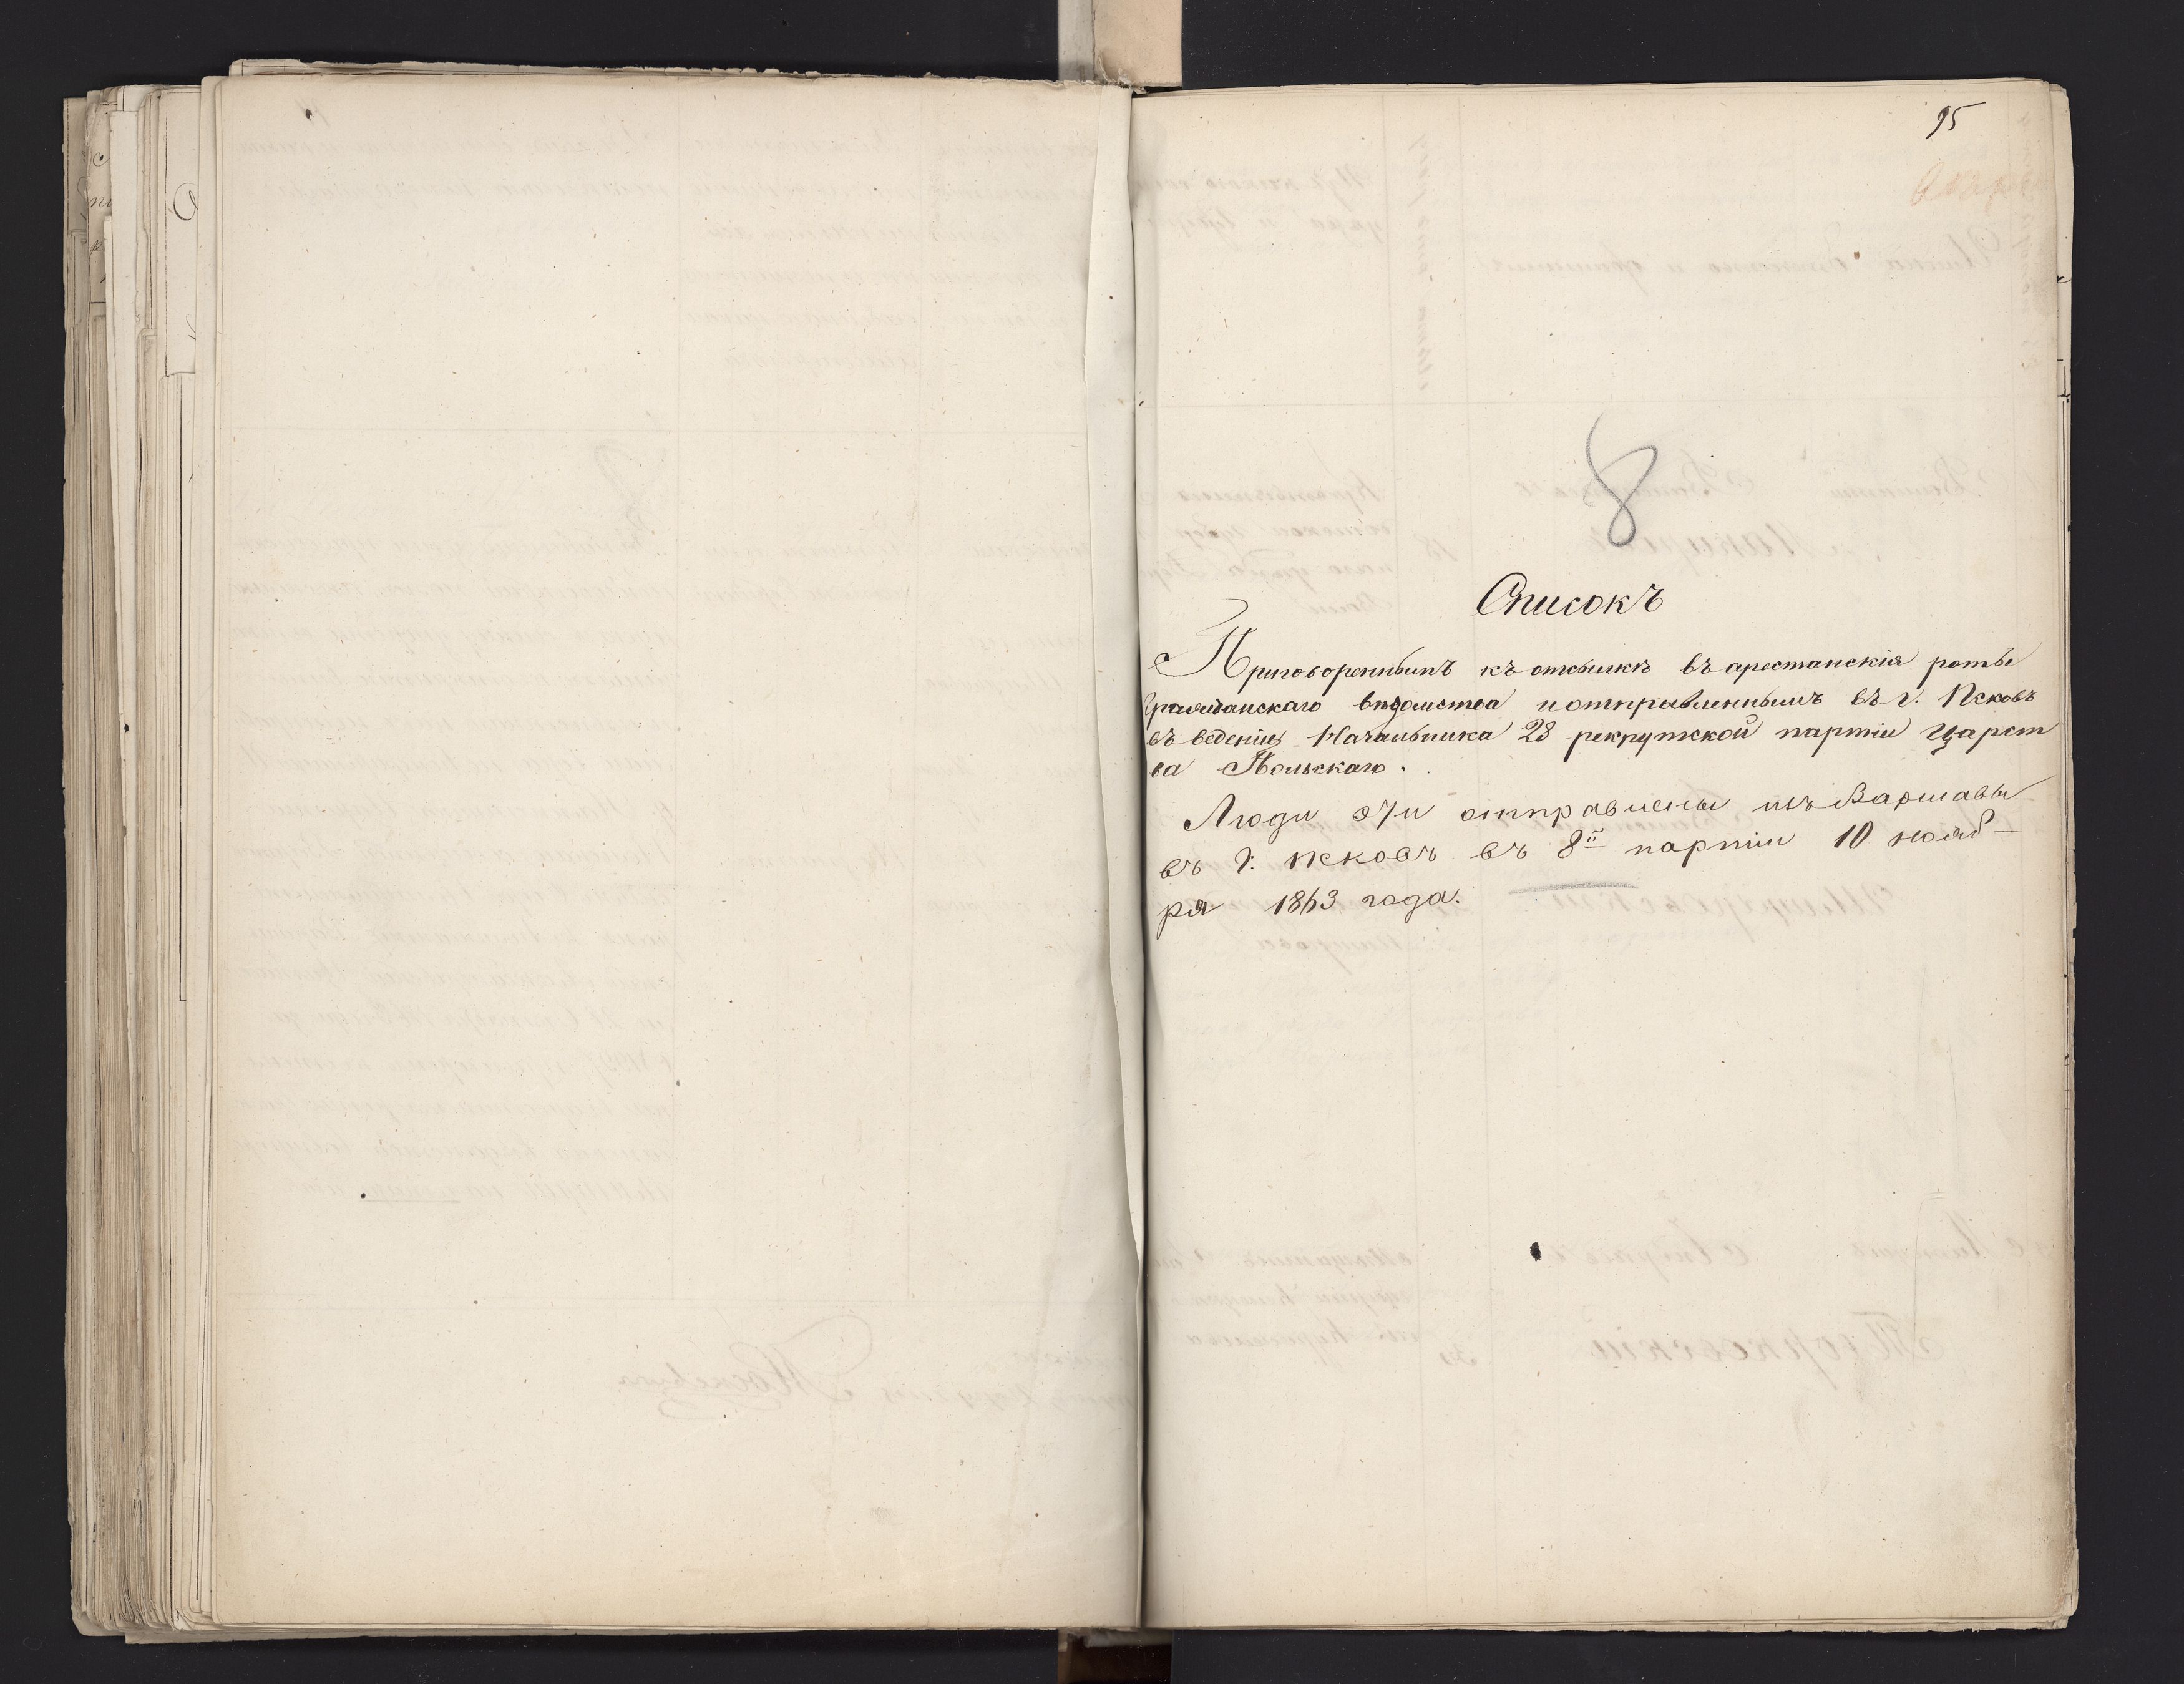 95
8
Списокъ
Приговореннымъ къ отсылкѣ въ арестанскія роты
Гражданскаго вѣдомства и отправленнымъ въ г. Псковъ
въ веденіе Начальника 28 рекрутской партіи Царст
ва Польскаго.
Люди эти отправлены изъ Варшавы
въ г. Псковъ въ 8й партіи 10 нояб-
ря 1863 года.